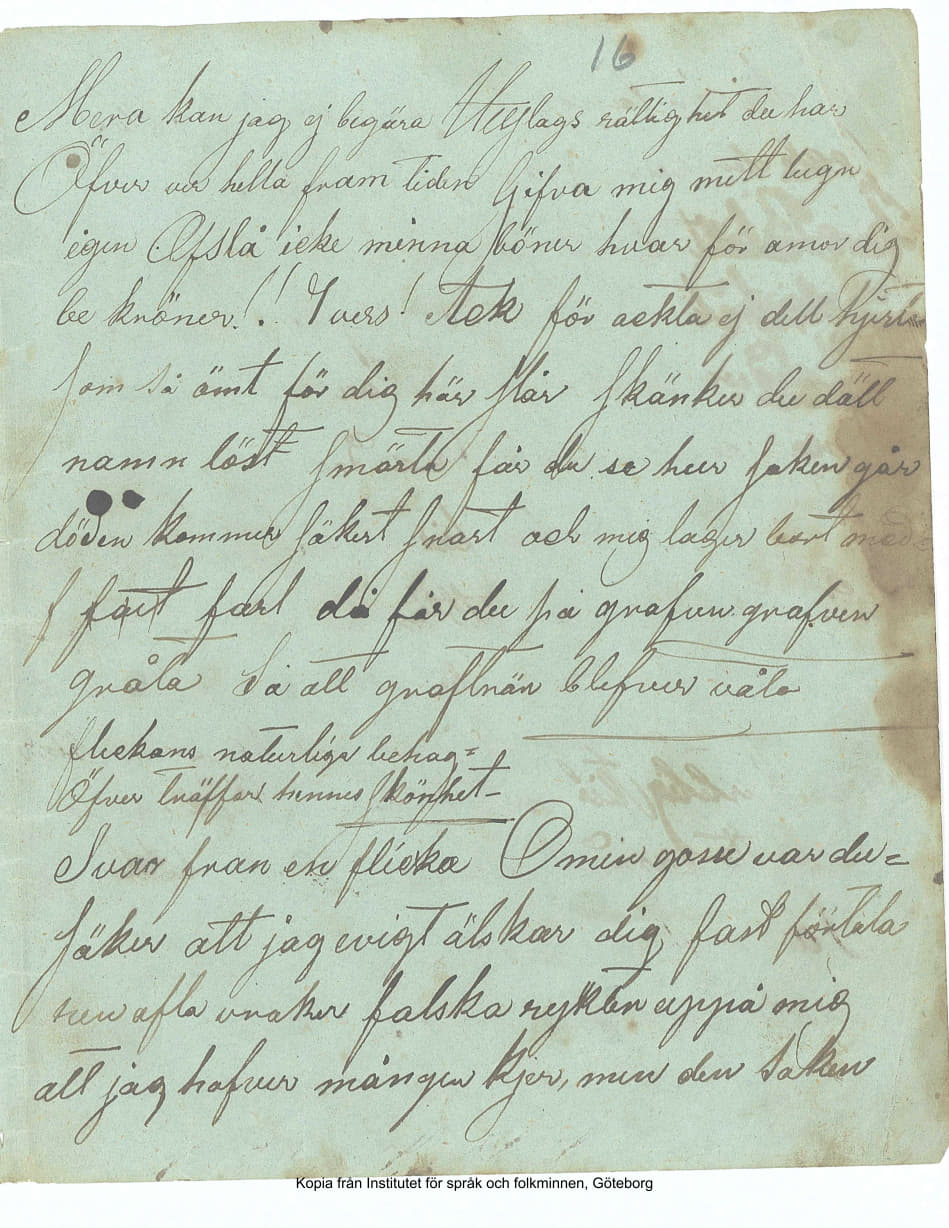 16
Mera kan jag ej begära lags rättighet du har
Öfver ver hella fram tiden Gifva mig mitt lugn
igen Afslå icke minna böner hvar för amor dig
be kröner!! 7 vers! Ack för ackta ej dett hjerta
som så ömt för dig här slår skänker du däll
namn löst smärta får du se hur saken går
döden kommer säkert snart ock mig tager bort med
f fart fart då får du på grafven grafven
gråta Så att grafträn blefver våta
flickans naturliga behag=
Öfver träffar hennes skönhet-
Svar fran en flicka O min gosse var du=
säker att jag evigt älskar dig fast förtala
ren ofta falska rykten uppå mig
att jag hafver mången kjer, men den saken
Kopia från Institutet för språk och folkminnen, Göteborg